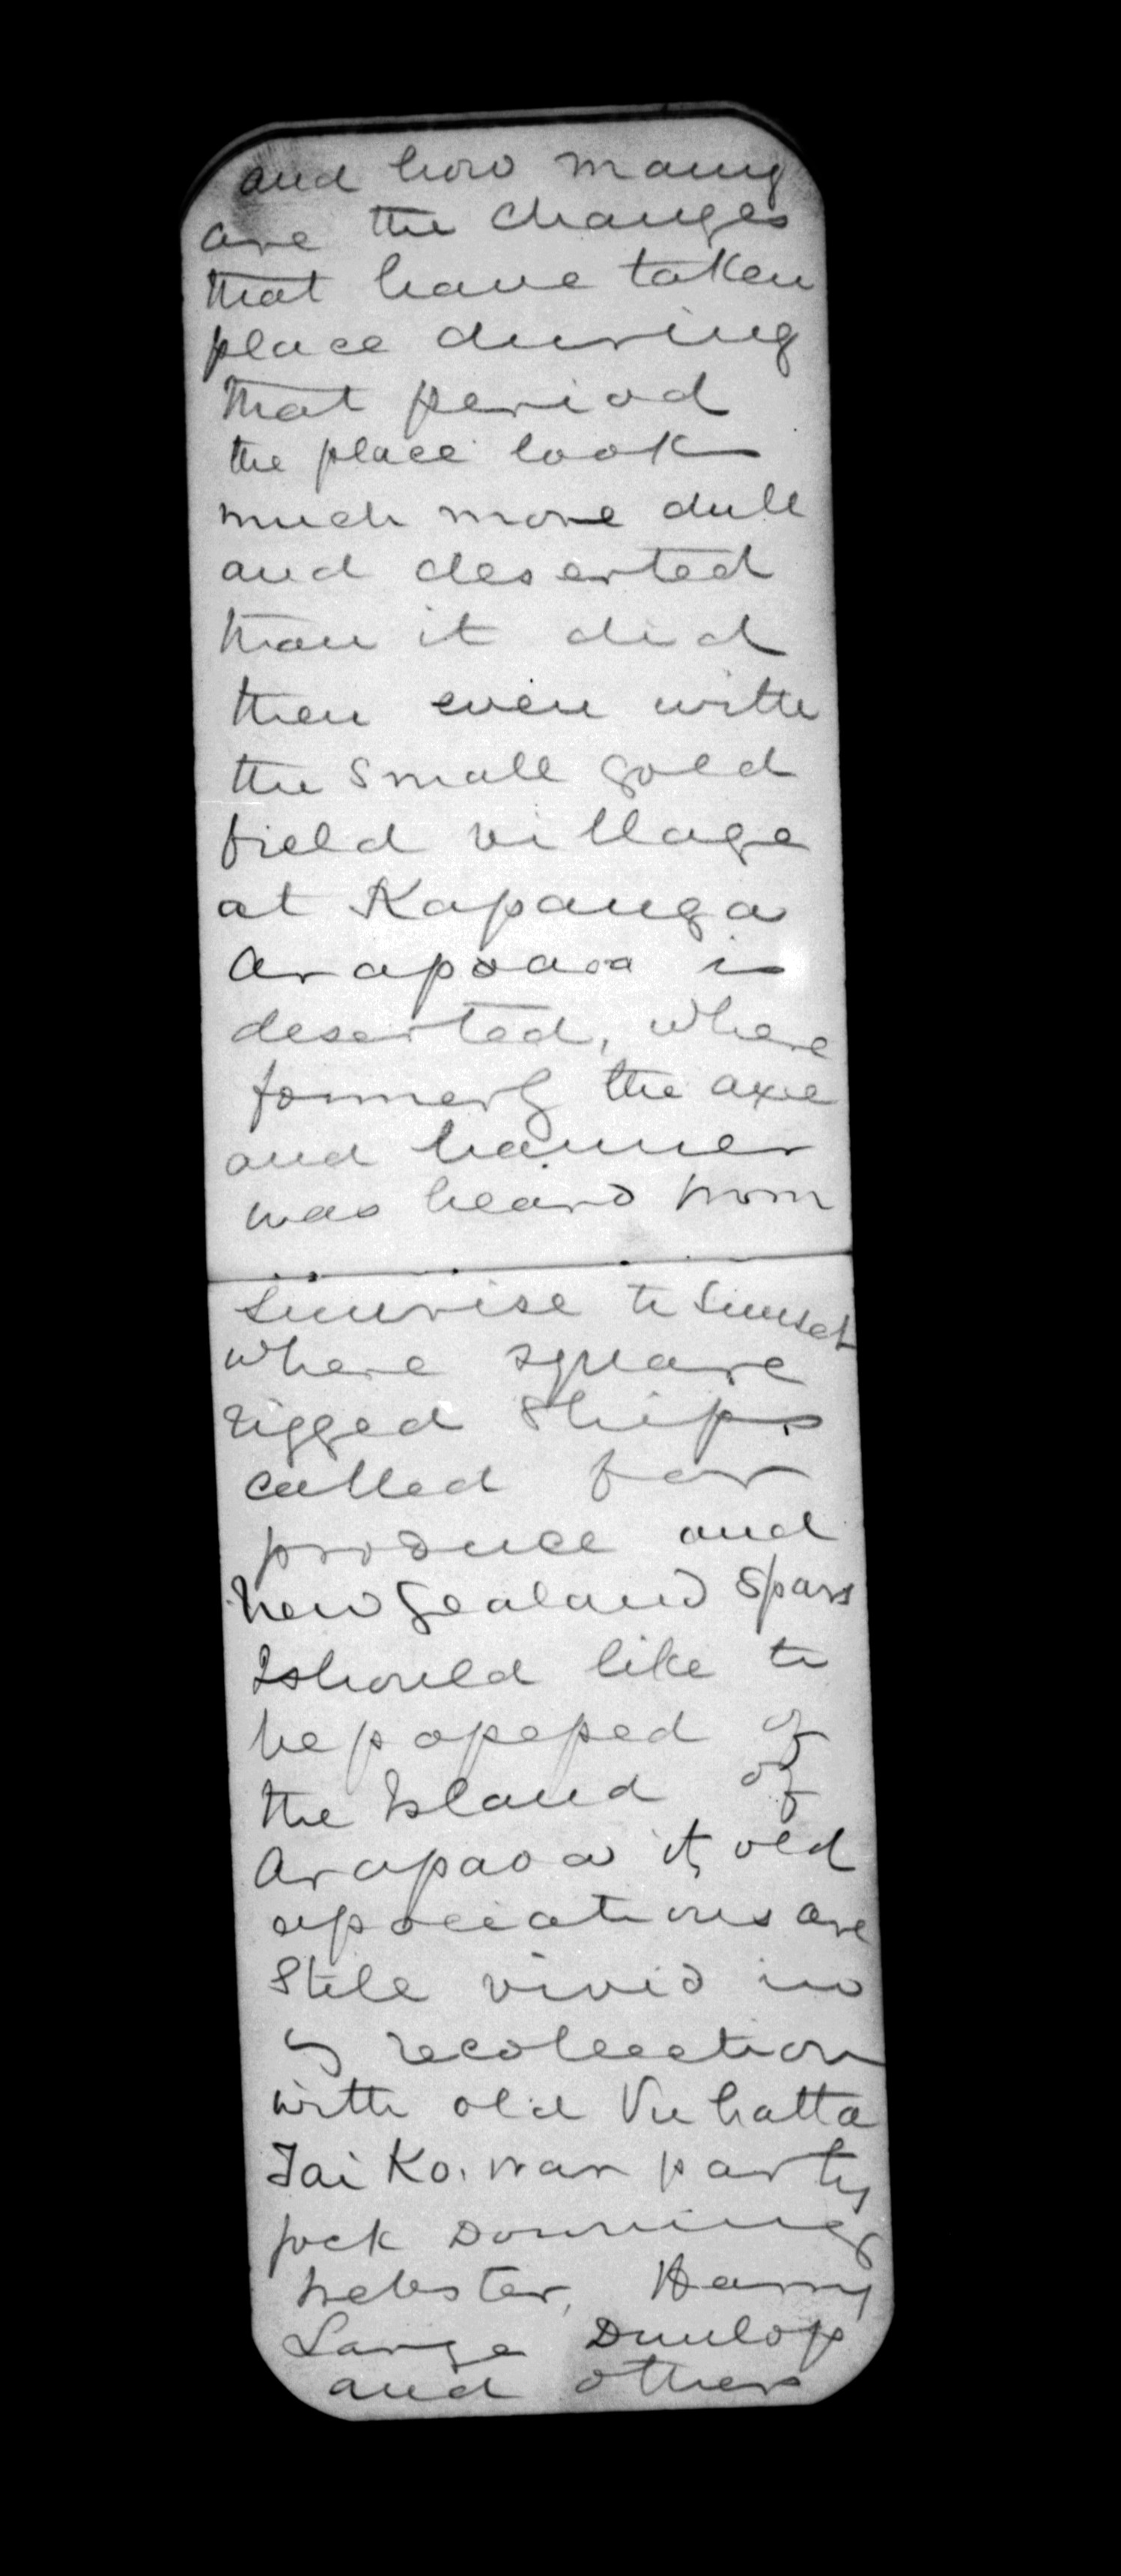 and how many
are the changes
that have taken
place during
that period
the place look
much more dull
and deserted
than it did
then even with
the small gold
field village
at Kapanga
Arapaoa is
deserted, where
formerly the axe
and hammer
was heard from
Sunrise to Sunset
where square
rigged Ships
called for
produce and
New Zealand Spars
I should like to
be possessed of
the Island of
Arapaoa its old
associations are
Still vivid in
my recollection
with old
Tai Ko. war party
Jock Downing
Webster, Harry
Large Dunlop
and others